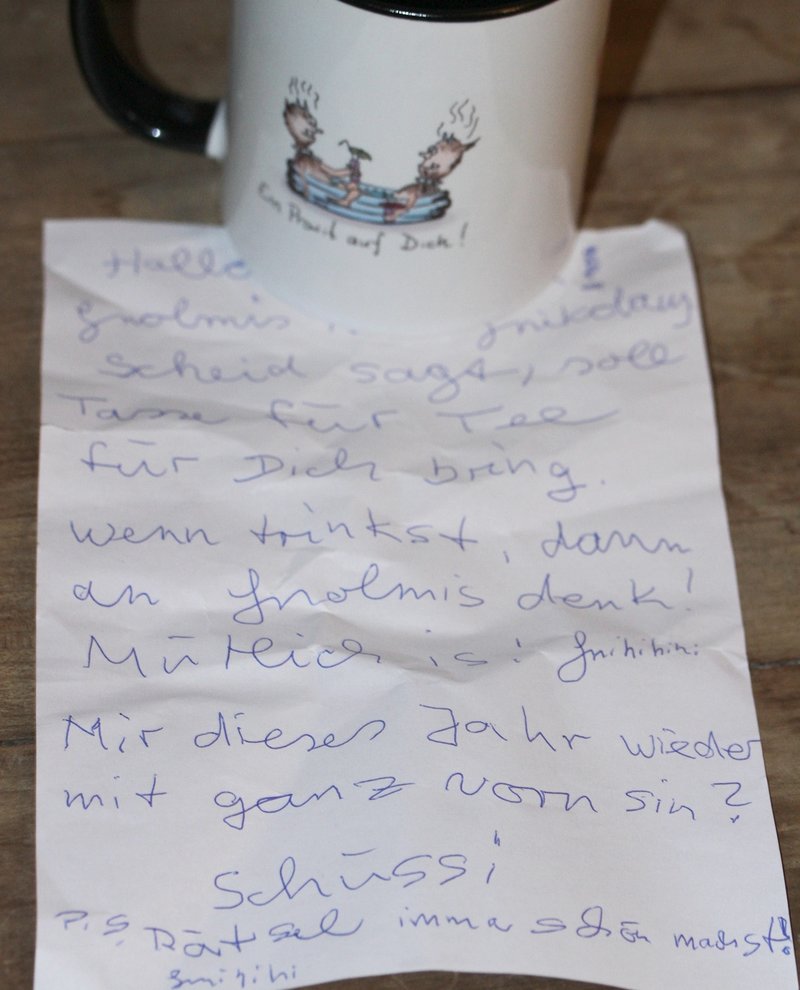 Ein Prosit auf Dich!
Hallo !
Gnolmis Gnikolaus
Scheid sagt, soll
Tasse für Tee
für Dich bring.
wenn trinkst, dann
an Gnolmis denk!
Mütlich is! Gnihihihi
Mir dieses Jahr wieder
mit ganz vorn sin?
Schüssi
P.S. Rätsel imma schön machst!
Gnihihi